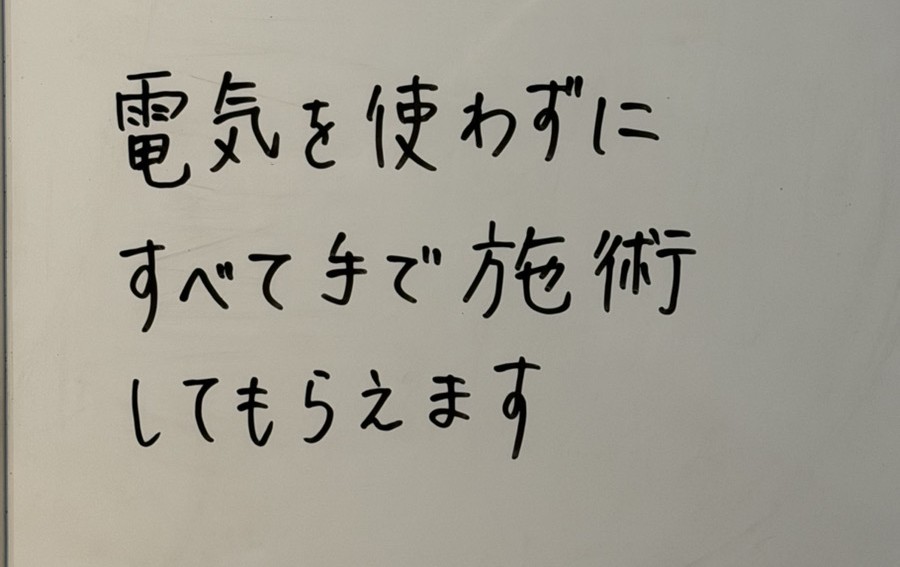 電気を使わずに
すべて手で施術
してもらえます